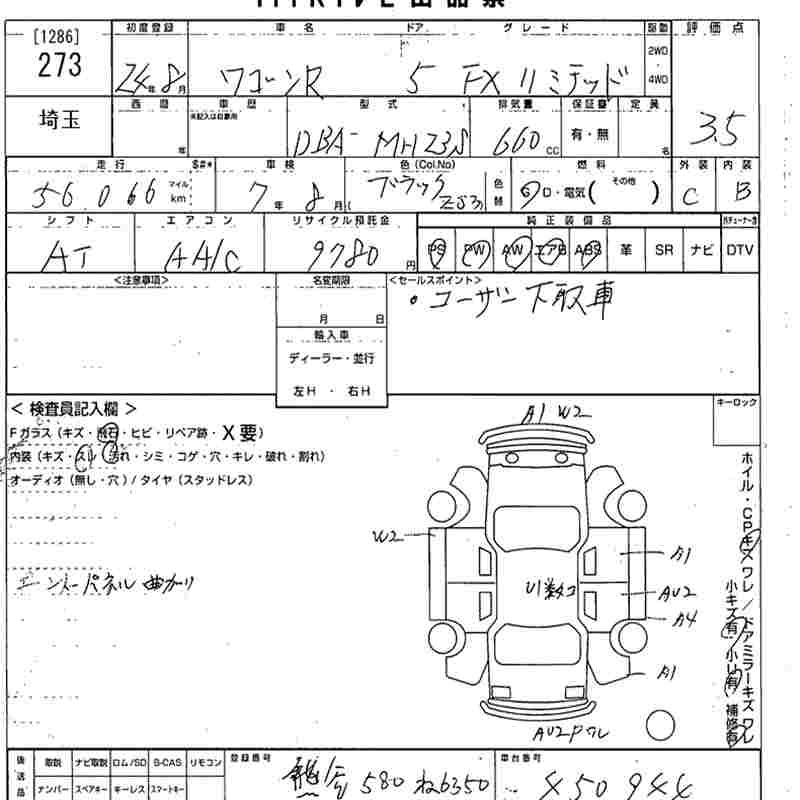 [1286]
273
初度登録 車名 ドア グレード 駆動 評価点
24年8月 ワゴンR 5 FXリミテッド 2WD 4WD 3.5
埼玉
西暦 車歴 型式 排気量 保証書 定員
※記入は自家用
年 DBA-MH23S 660cc 有・無 名
走行 $#* 車検 色(Col.No) 燃料 外装 内装
56,066 マイル km 7年8月( ブラック ZJ3) 色替 G D・電気( その他 ) C B
シフト エアコン リサイクル預託金 純正装備品
AT AA/C 9780円 PS PW AW エアB ABS 革 SR ナビ DTV
<注意事項> 名変期限 <セールスポイント>
月 日 ・ユーザー下取車
輸入車
ディーラー・並行
左H ・ 右H
<検査員記入欄> キーロック
Fガラス(キズ・飛石・ヒビ・リペア跡・X要)
内装(キズ・スリ・汚れ・シミ・コゲ・穴・キレ・破れ・割れ)
オーディオ(無し・穴)/タイヤ(スタッドレス)
A1 W2
W2
A1
エンドパネル曲がり
U1
AU2
A4
A1
AU2Pワレ
ホイル・CPキズワレ/ドアミラーキズワレ
小キズ有/小U有/補修有
後送品 取説 ナビ取説 ロム/SD B-CAS リモコン 登録番号 車台番号
ナンバー スペアキー キーレス スマートキー 熊谷 580 ね6350 450944